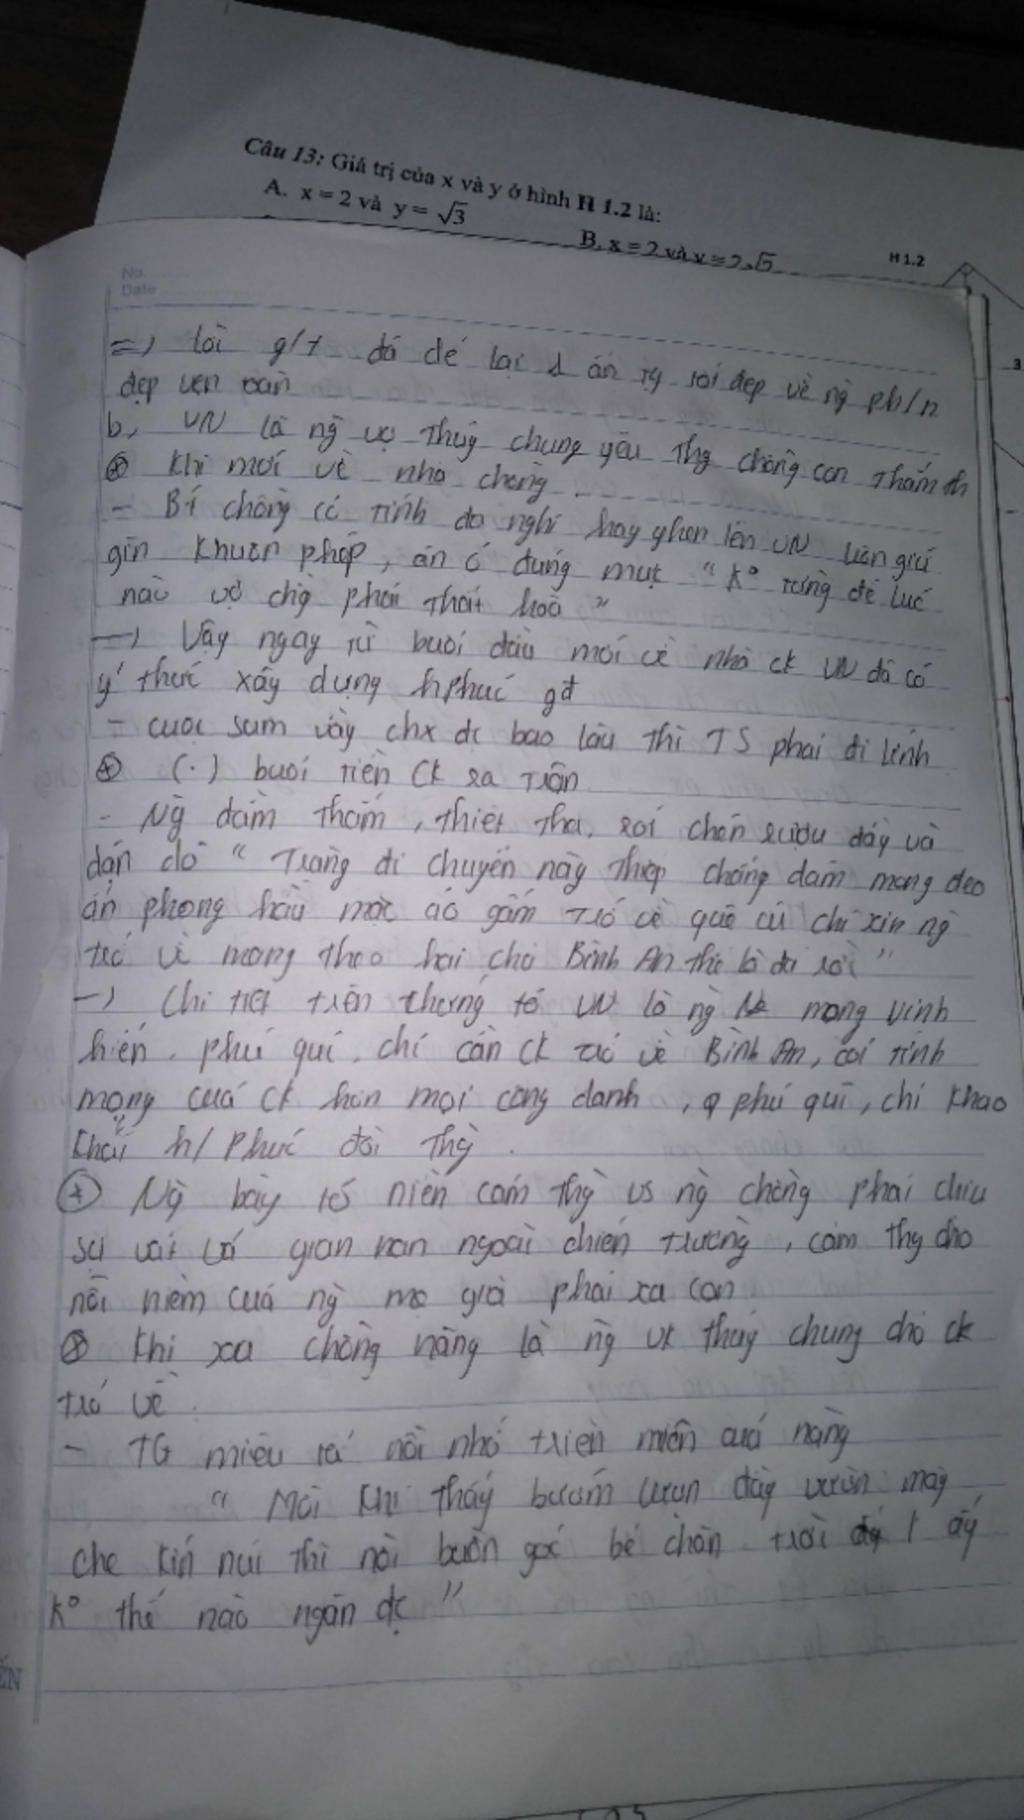 Câu 13: Giá trị của x và y ở hình H 1.2 là:
A. x = 2 và y = √3
B. x = 2 và y = 2√5
H 1.2
No.
Date
=) lời g/t đã để lại 1 ấn tg rồi đẹp về ng ph/n
đẹp vẹn toàn
b, VN là ng vợ thủy chung yêu thg chồng con thắm th
⊗ Khi mới về nhà chồng
- Bt chồng có tính đa nghi hay ghen lên VN luôn giữ
gìn khuôn phép, ăn ở đúng mực "K° từng để lúc
nào vợ chg phải thất hoà"
—) Vậy ngay từ buổi đầu mới về nhà ck VN đã có
ý thức xây dựng hphúc gđ
- cuộc sum vầy chx đc bao lâu thì TS phải đi lính
⊕ (.) buổi tiễn Ck ra trận
- Ng đằm thắm, thiết tha, rót chén rượu đầy và
dặn dò "Tràng đi chuyến này thiếp chẳng dám mong đeo
ấn phong hầu mặc áo gấm trở về quê cũ chỉ xin ng
trở về mang theo hai chữ Bình An thế là đủ rồi"
—) Chi tiết trên chứng tỏ VN là ng k mong vinh
hiển, phú quí, chỉ cần ck trở về Bình An, coi tính
mạng của ck hơn mọi công danh, phú quí, chỉ khao
khát h/phúc đời thg.
⊕ Ng bày tỏ niềm cảm thg vs ng chồng phải chịu
sự vất vả gian nan ngoài chiến trường, cảm thg cho
nỗi niềm của ng mẹ già phải xa con
⊗ Khi xa chồng nàng là ng vk thủy chung chờ ck
trở về.
- TG miêu tả nỗi nhớ triền miên của nàng
"Mỗi khi thấy bướm lượn đầy vườn mây
che kín núi thì nỗi buồn góc bể chân trời l ấy
K° thể nào ngăn đc"